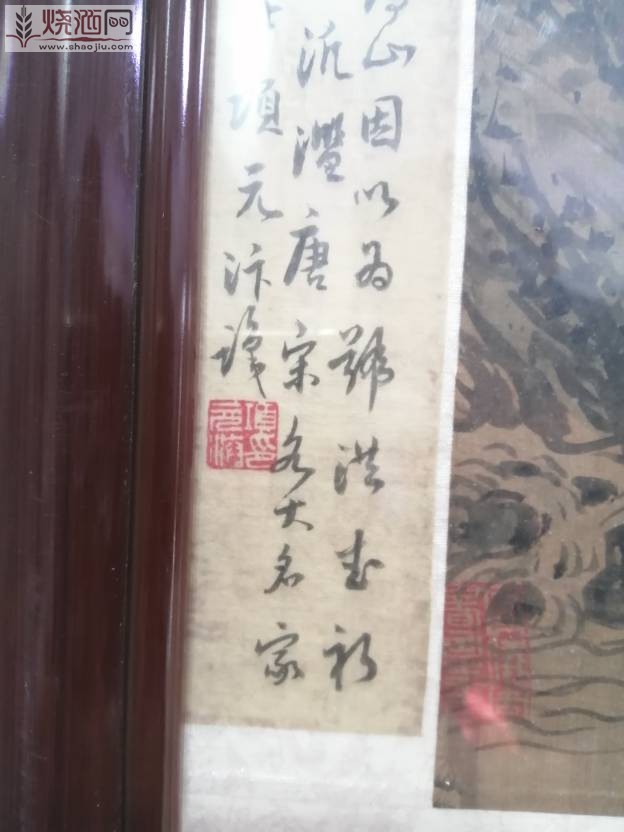 烧酒网
www.shaojiu.com
山因以為號洪武初
沉灃唐宋各大名家
項元汴識
項元汴印